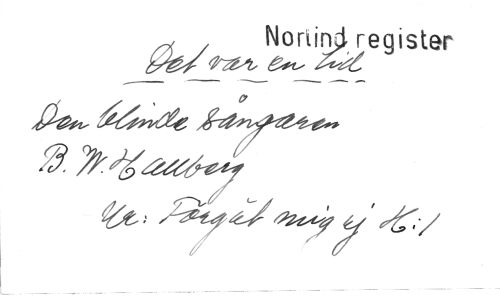 Nortind register
Det var en tid
Den blinde sångaren
B. W. Hallberg
Ur: Förgät mig ej H:1